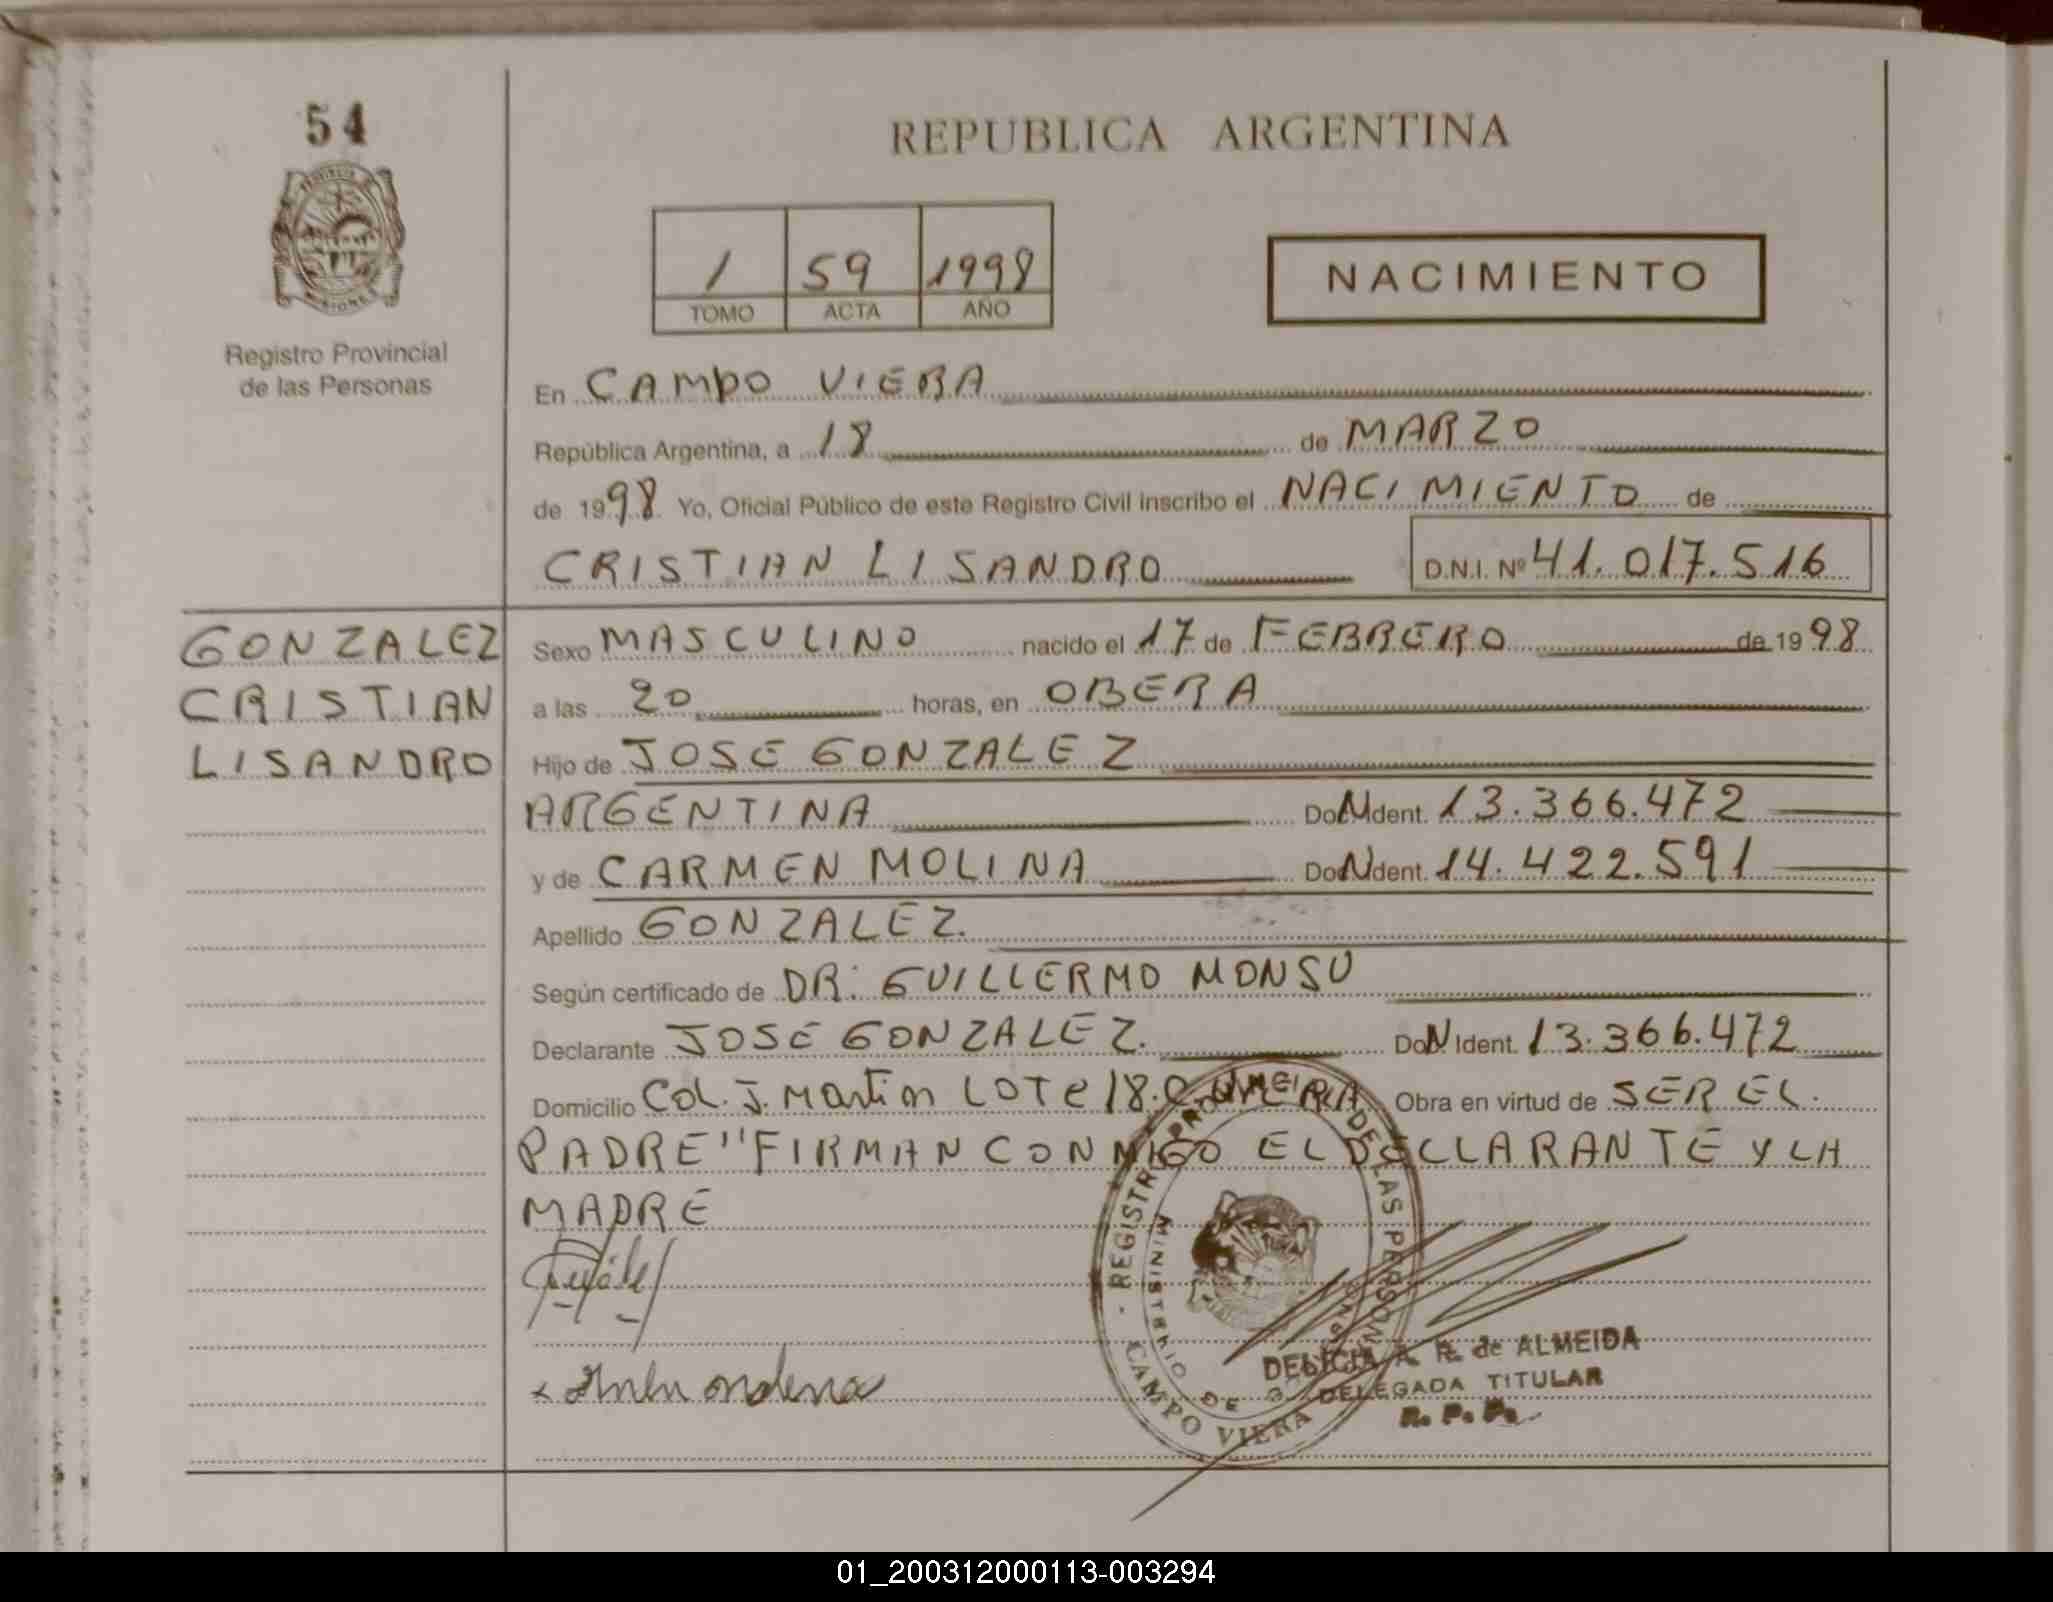 54
REPUBLICA ARGENTINA
1 59 1998
TOMO ACTA AÑO
NACIMIENTO
Registro Provincial
de las Personas
En CAMPO VIERA
República Argentina, a 18 de MARZO
de 1998 Yo, Oficial Público de este Registro Civil inscribo el NACIMIENTO de
CRISTIAN LISANDRO D.N.I. Nº 41.017.516
GONZALEZ
CRISTIAN
LISANDRO
Sexo MASCULINO nacido el 17 de FEBRERO de 1998
a las 20 horas, en OBERA
Hijo de JOSE GONZALEZ
ARGENTINA Doc. Ident. 13.366.472
y de CARMEN MOLINA Doc. Ident. 14.422.591
Apellido GONZALEZ.
Según certificado de DR: GUILLERMO MONSU
Declarante JOSE GONZALEZ. Doc. Ident. 13.366.472
Domicilio Col. J. Martin LOTe 18.C. VIERA Obra en virtud de SER EL
PADRE" FIRMAN CONMIGO EL DECLARANTE Y LA
MADRE
REGISTRO PROVINCIAL DE LAS PERSONAS
MINISTERIO DE
CAMPO VIERA
DELICIA A. R. de ALMEIDA
DELEGADA TITULAR
R. P. P.
01_200312000113-003294